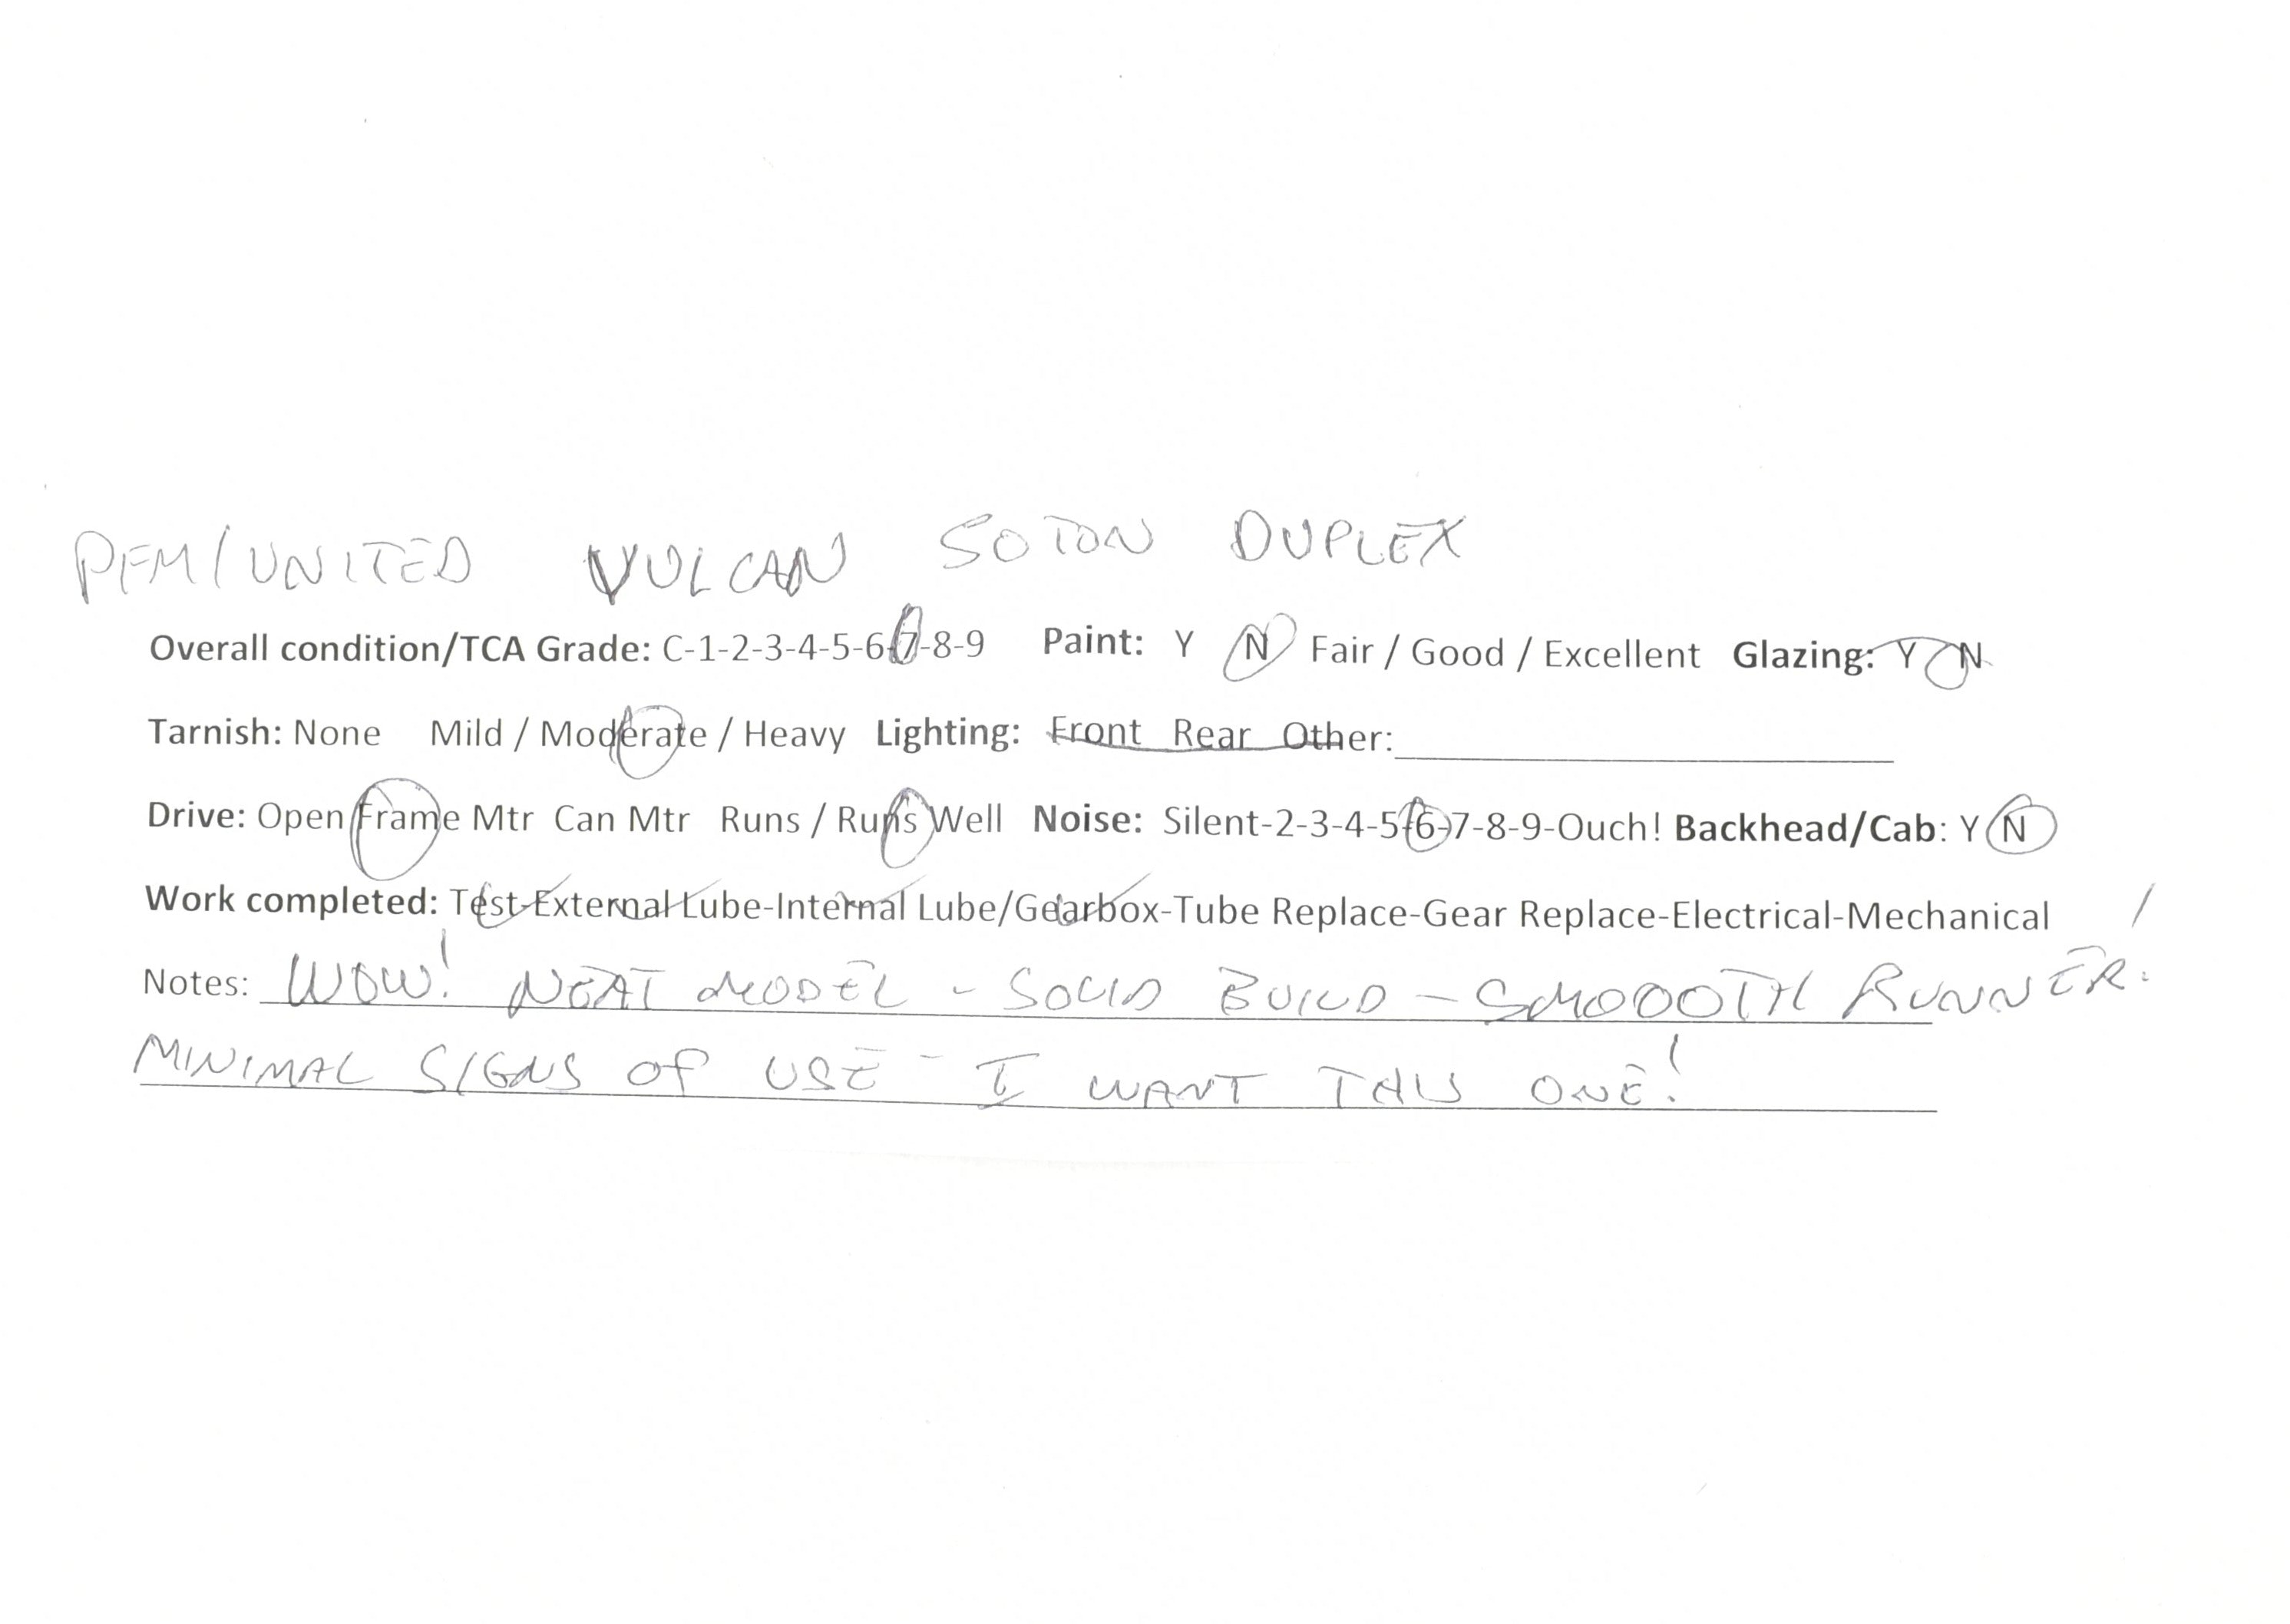 PFM/UNITED VULCAN 50 TON DUPLEX
Overall condition/TCA Grade: C-1-2-3-4-5-6-7-8-9 Paint: Y N Fair / Good / Excellent Glazing: Y N
Tarnish: None Mild / Moderate / Heavy Lighting: Front Rear Other:
Drive: Open Frame Mtr Can Mtr Runs / Runs Well Noise: Silent-2-3-4-5-6-7-8-9-Ouch! Backhead/Cab: Y N
Work completed: Test-External Lube-Internal Lube/Gearbox-Tube Replace-Gear Replace-Electrical-Mechanical
Notes: WOW! NEAT MODEL - SOLID BUILD - SMOOOTH RUNNER!
MINIMAL SIGNS OF USE - I WANT THIS ONE!